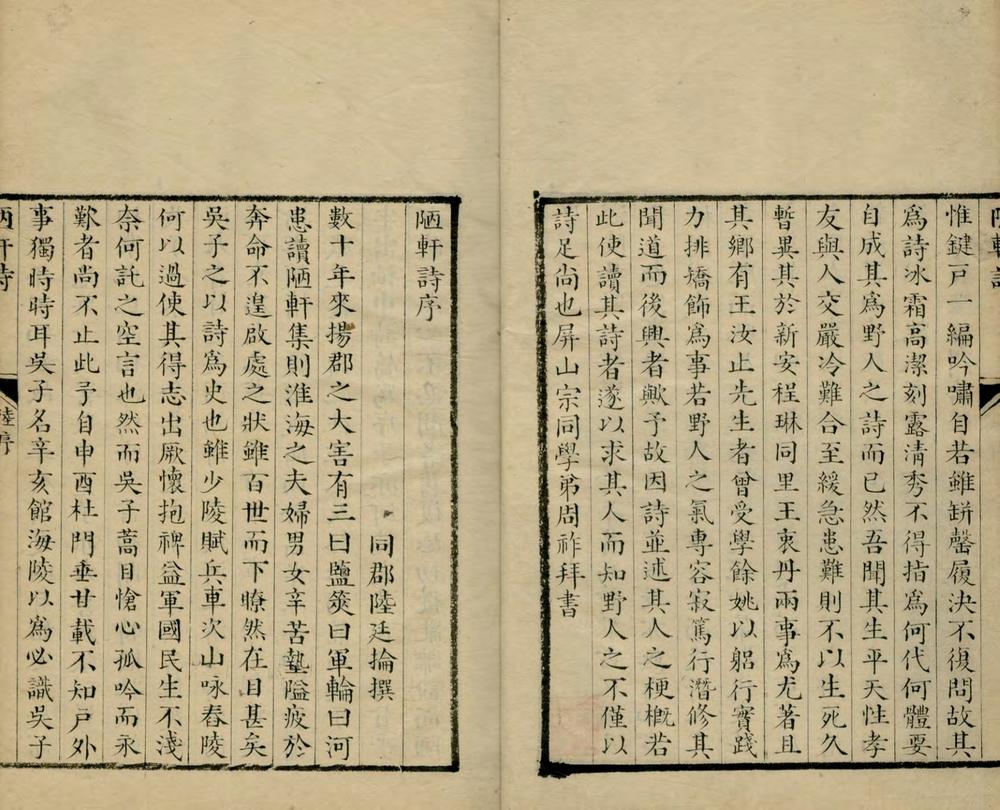 惟鍵戶一編吟嘯自若雖缾罄履決不復問故其
爲詩冰霜高潔刻露清秀不得指爲何代何體要
自成其爲野人之詩而已然吾聞其生平天性孝
友與人交嚴冷難合至緩急患難則不以生死久
暫異其於新安程琳同里王衷丹兩事爲尤著且
其鄉有王汝止先生者曾受學餘姚以躬行實踐
力排矯飾爲事若野人之氣專容寂篤行潛修其
聞道而後興者歟予故因詩並述其人之梗槪若
此使讀其詩者遂以求其人而知野人之不僅以
詩足尚也屏山宗同學弟周祚拜書
陋軒詩序
同郡陸廷掄撰
數十年來揚郡之大害有三曰鹽筴曰軍輪曰河
患讀陋軒集則淮海之夫婦男女辛苦墊隘疲於
奔命不遑啟處之狀雖百世而下瞭然在目甚矣
吳子之以詩爲史也雖少陵賦兵車次山咏舂陵
何以過使其得志出厥懷抱裨益軍國民生不淺
奈何託之空言也然而吳子蒿目愴心孤吟而永
歎者尚不止此予自申酉杜門垂廿載不知戶外
事獨時時耳吳子名辛亥館海陵以爲必識吳子
陋軒詩
陸序